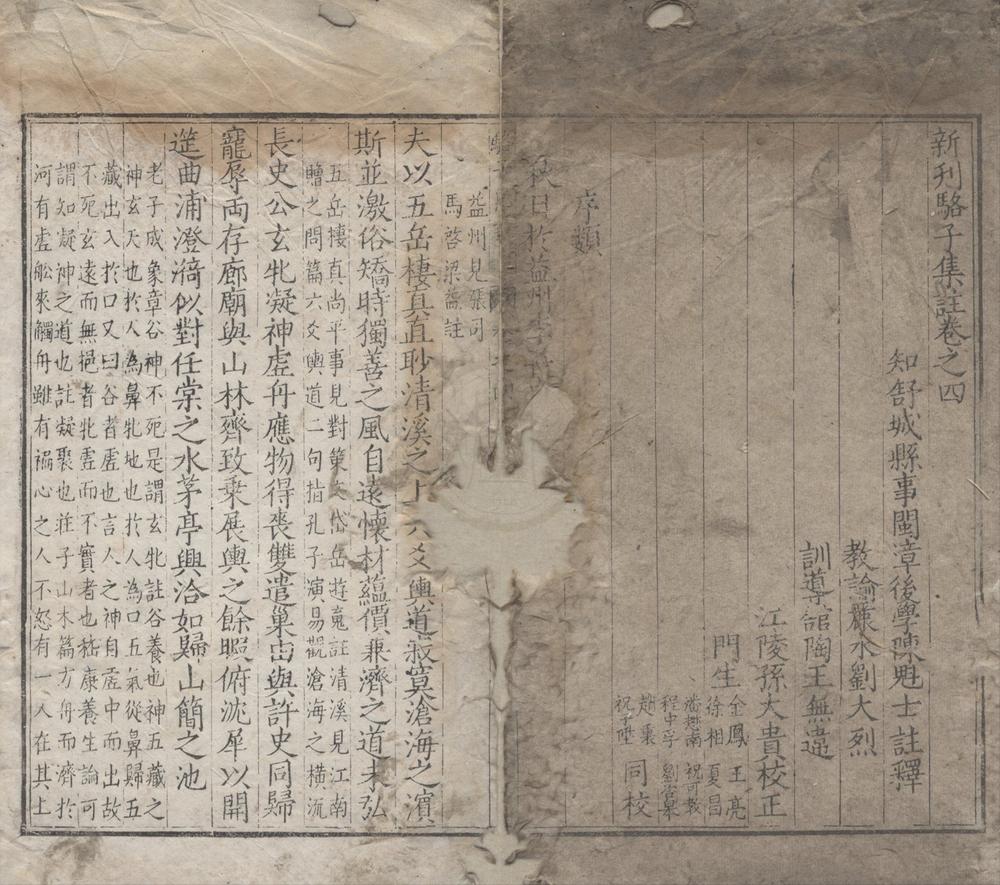 新刊駱子集註卷之四
知舒城縣事閩漳後學陳魁士註釋
教諭麻水劉大烈
訓導舘陶王無違
江陵孫大貴校正
門生
金鳳 王亮
徐相 夏昌
潘懋南 祝可教
程中孚
趙襄
祝子陞
同校
序類
秋日於益州李
益州見張司
馬啓梁益註
夫以五岳棲真直眇清溪之上六爻輿道寂寞滄海之濱
五岳棲真尚平事見對策文岱岳遊䰟註清溪見江南
贈之問篇六爻輿道二句指孔子演易觀滄海之橫流
斯並激俗矯時獨善之風自遠懷材蘊價兼濟之道未弘
長史公玄牝凝神虛舟應物得喪雙遣巢由與許史同歸
寵辱両存廊廟與山林齊致乗展輿之餘暇俯沈犀以開
筵曲浦澄漪似對任棠之水茅亭興洽如歸山簡之池
老子成象章谷神不死是謂玄牝註谷養也神五藏之
神玄天也於人為鼻牝地也於人為口五氣從鼻歸五
藏出入於口又曰谷者虛也言人之神自虛中而出故
不死玄遠而無挹者牝虛而不實者也嵇康養生論可
謂知凝神之道也註凝聚也莊子山木篇方舟而濟於
河有虛舩來觸舟雖有褊心之人不怒有一人在其上